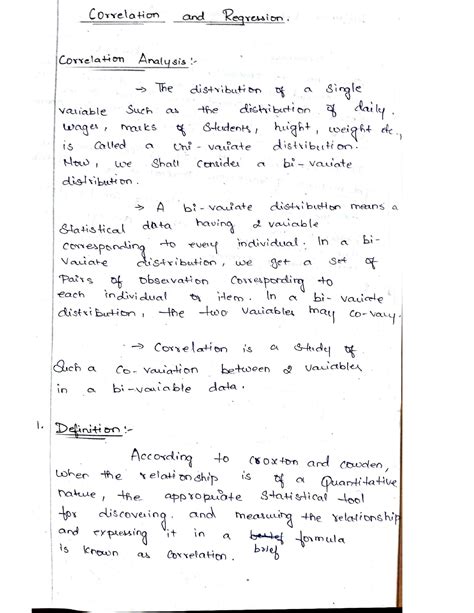 Correlation and Regression.
Correlation Analysis:-
→ The distribution of a single
variable such as the distribution of daily.
wages, marks of students, hight, weight etc.,
is called a Uni-variate distribution.
Now, we shall consider a bi-variate
distribution.
→ A bi-variate distribution means a
statistical data having 2 variable
corresponding to every individual. In a bi-
variate distribution, we get a set of
Pairs of observation corresponding to
each individual or item. In a bi-variate
distribution, the two variables may co-vary.
→ Correlation is a study of
Such a co-variation between 2 variables
in a bi-variable data.
1. Definition:-
According to croxton and cowden,
when the relationship is of a Quantitative
nature, the appropriate statistical tool
for discovering and measuring the relationship
and expressing it in a formula
brief
is known as correlation.